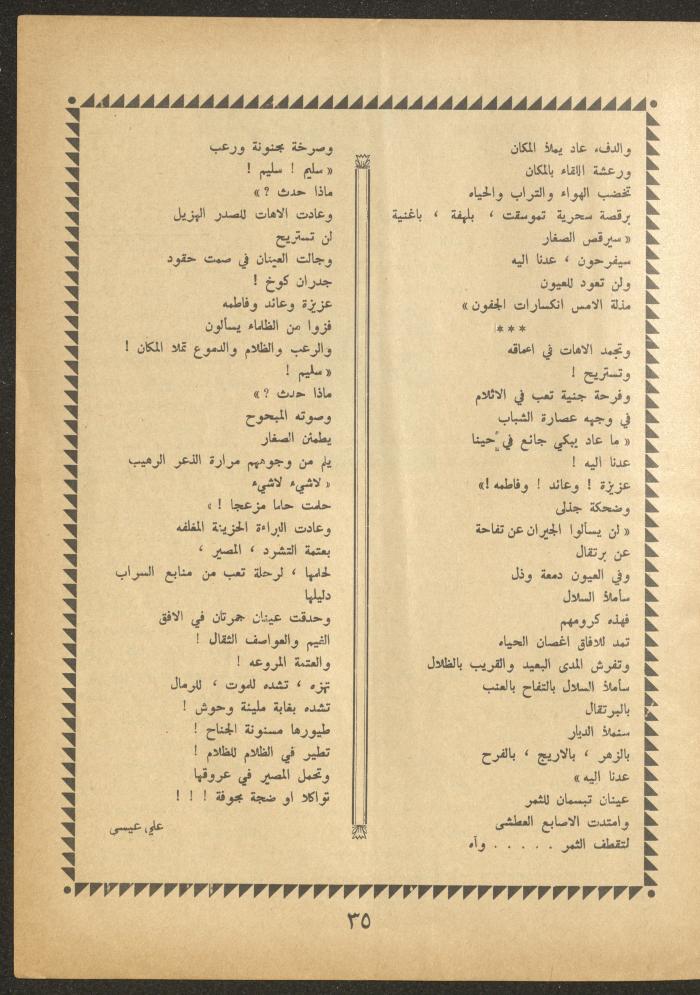 والدفء عاد يملأ المكان
ورعشة اللقاء بالمكان
تخضب الهواء والتراب والحياه
برقصة سحرية تموسقت ، بلهفة ، باغنية
« سيرقص الصغار
سيفرحون ، عدنا اليه
ولن تعود للعيون
مذلة الامس انكسارات الجفون »
* * *
وتجمد الاهات في اعماقه
وتستريح !
وفرحة جنية تعب في الاثلام
في وجهه عصارة الشباب
« ما عاد يبكي جائع في حينا
عدنا اليه !
عزيزة ! وعائد ! وفاطمه !»
وضحكة جذلى
« لن يسألوا الجيران عن تفاحة
عن برتقال
وفي العيون دمعة وذل
سأملأ السلال
فهذه كرومهم
تمد للافاق اغصان الحياه
وتفرش المدى البعيد والقريب بالظلال
سأملأ السلال بالتفاح بالعنب
بالبرتقال
سنملأ الديار
بالزهر ، بالاريج ، بالفرح
عدنا اليه »
عينان تبسمان للثمر
وامتدت الاصابع العطشى
لتقطف الثمر . . . . . وآه
وصرخة مجنونة ورعب
« سليم ! سليم !
ماذا حدث ؟ »
وعادت الاهات للصدر الهزيل
لن تستريح
وجالت العينان في صمت حقود
جدران كوخ !
عزيزة وعائد وفاطمه
فزوا من الظلماء يسألون
والرعب والظلام والدموع تملا المكان !
« سليم !
ماذا حدث ؟ »
وصوته المبحوح
يطمئن الصغار
يلم من وجوههم مرارة الذعر الرهيب
« لاشيء لاشيء
حلمت حلما مزعجا ! »
وعادت البراءة الحزينة المغلفه
بعتمة التشرد ، المصير ،
لحلمها ، لرحلة تعب من منابع السراب
دليلها
وحدقت عينان جمرتان في الافق
الغيم والعواصف الثقال !
والعتمة المروعه !
تهزه ، تشده للموت ، للرمال
تشده بغابة مليئة وحوش !
طيورها مسنونة الجناح !
تطير في الظلام للظلام !
وتحمل المصير في عروقها
تواكلا او ضجة مجوفة ! ! !
علي عيسى
٣٥